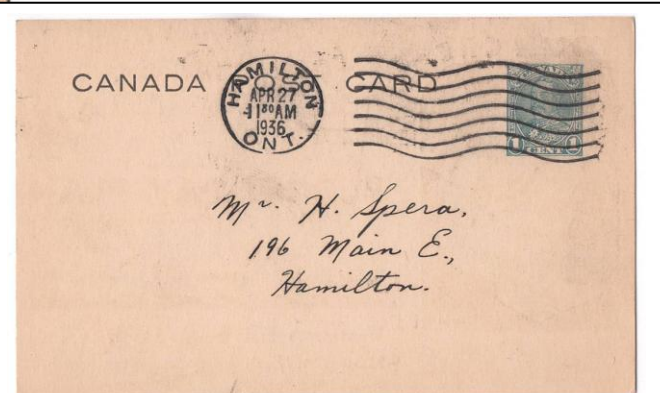 CANADA CARD
HAMILTON
APR 27
11³⁰ AM
1936
ONT.
1 CENT 1
Mr. H. Spera,
196 Main E.,
Hamilton.